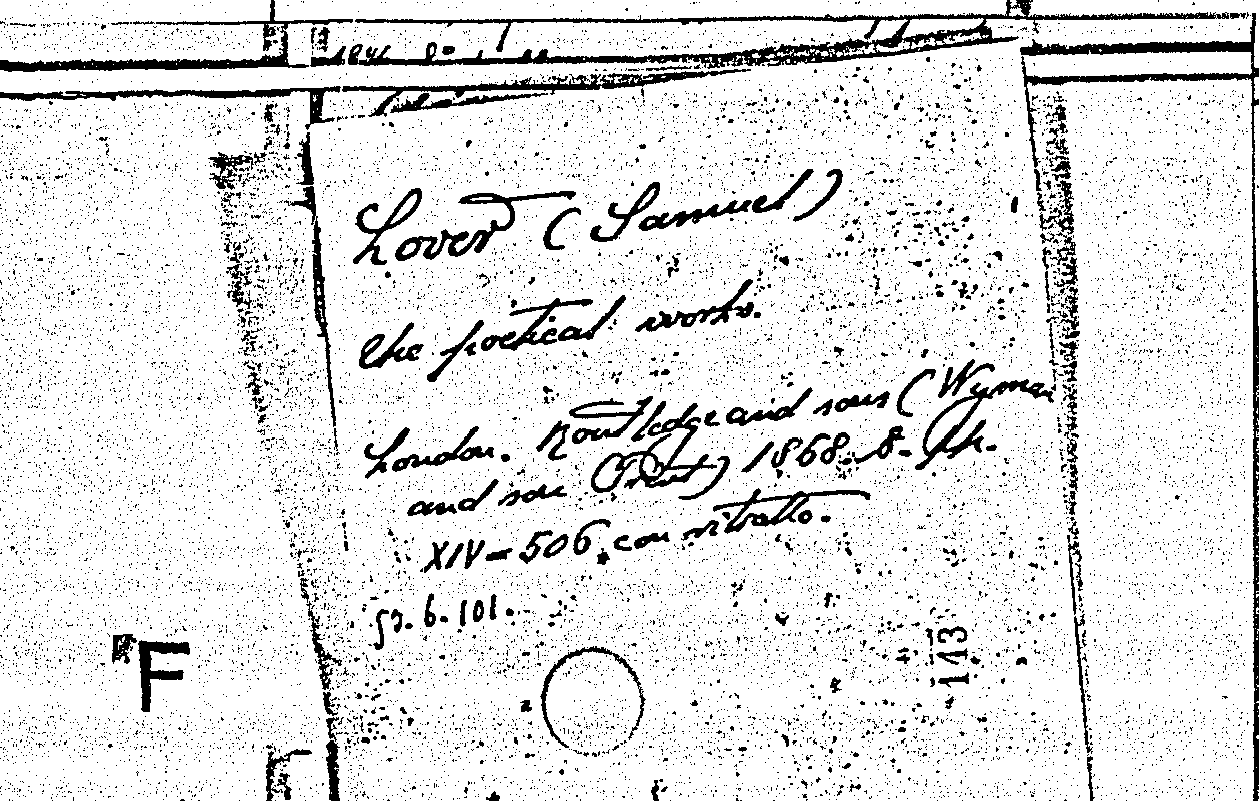 Lover (Samuel)
the poetical works.
London. Routledge and sons (Wyman
and son Print) 1868. 8.
XIV-506. con ritratto.
53.6.101.
143
F